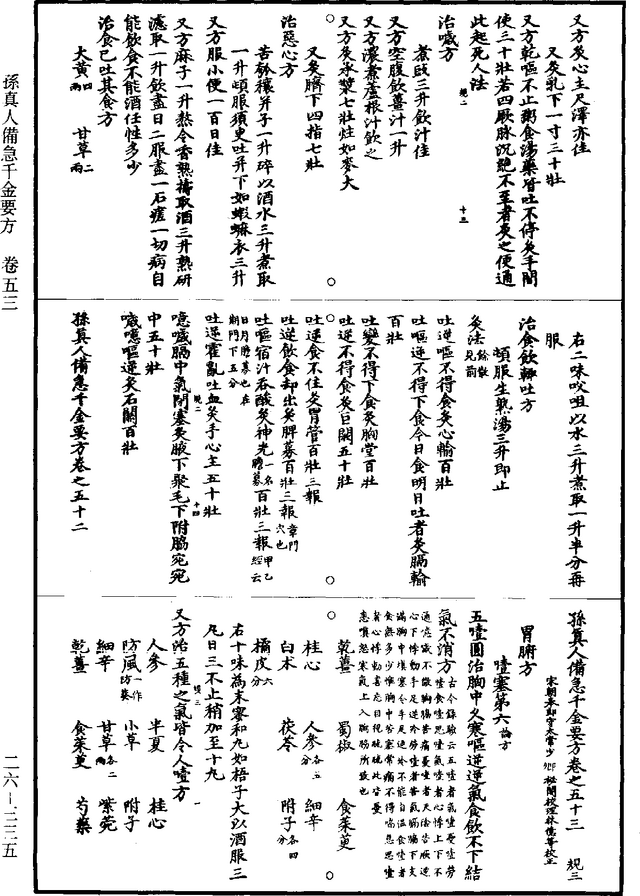 孫真人備急千金要方 卷五三
二六-三三五
又方灸心主尺澤亦佳
又灸乳下一寸三十壯
又方乾嘔不止粥食湯藥皆吐不停灸手間
使三十壯若四厥脉沉絕不至者灸之便通
此起死人法
治噦方
煮豉三升飲汁佳
又方空腹飲薑汁一升
又方濃煮蘆根汁飲之
又方灸承漿七壯炷如麥大
又灸臍下四指七壯
治惡心方
苦瓠穰并子一升碎以酒水三升煮取
一升頓服須臾吐并下如蝦蟆衣三升
又方服小便一百日佳
又方麻子一升熬令香熟擣取酒三升熟研
濾取一升飲盡日二服盡一石瘥一切病自
能飲食不能酒任性多少
治食已吐其食方
大黃四兩 甘草二兩
右二味㕮咀以水三升煮取一升半分再
服
治食飲輒吐方
頓服生熟湯三升即止
灸法餘散見前
吐逆嘔不得食灸心輸百壯
吐嘔逆不得下食今日食明日吐者灸膈輸
百壯
吐變不得下食灸胸堂百壯
吐逆不得食灸巨闕五十壯
吐逆食不住灸胃管百壯三報
吐逆飲食却出灸脾募百壯三報章門穴也
吐嘔宿汁吞酸灸神光一名膽募百壯三報甲乙經云
日月膽募也在期門下五分
吐逆霍亂吐血灸手心主五十壯
噫噦膈中氣閉塞灸腋下聚毛下附脇宛宛
中五十壯
噦噫嘔逆灸石關百壯
孫真人備急千金要方卷之五十二
孫真人備急千金要方卷之五十三 規三
宋朝奉郎守太常少卿 秘閣校理林億等校正
胃腑方
噎塞第六論方
五噎圓治胸中久寒嘔逆逆氣食飲不下結
氣不消方古今錄驗云五噎者氣噎憂噎勞
噎食噎思噎氣噎者心悸上下不
乾薑 蜀椒 食茱萸
桂心 人參各五分 細辛
白术 茯苓 附子各四分
橘皮六分
右十味為末蜜和丸如梧子大以酒服三
丸日三不止稍加至十丸
又方治五種之氣皆令人噎方
人參 半夏 桂心
防風一作防葵 小草 附子
細辛 甘草各二兩 紫菀
乾薑 食茱萸 芍藥